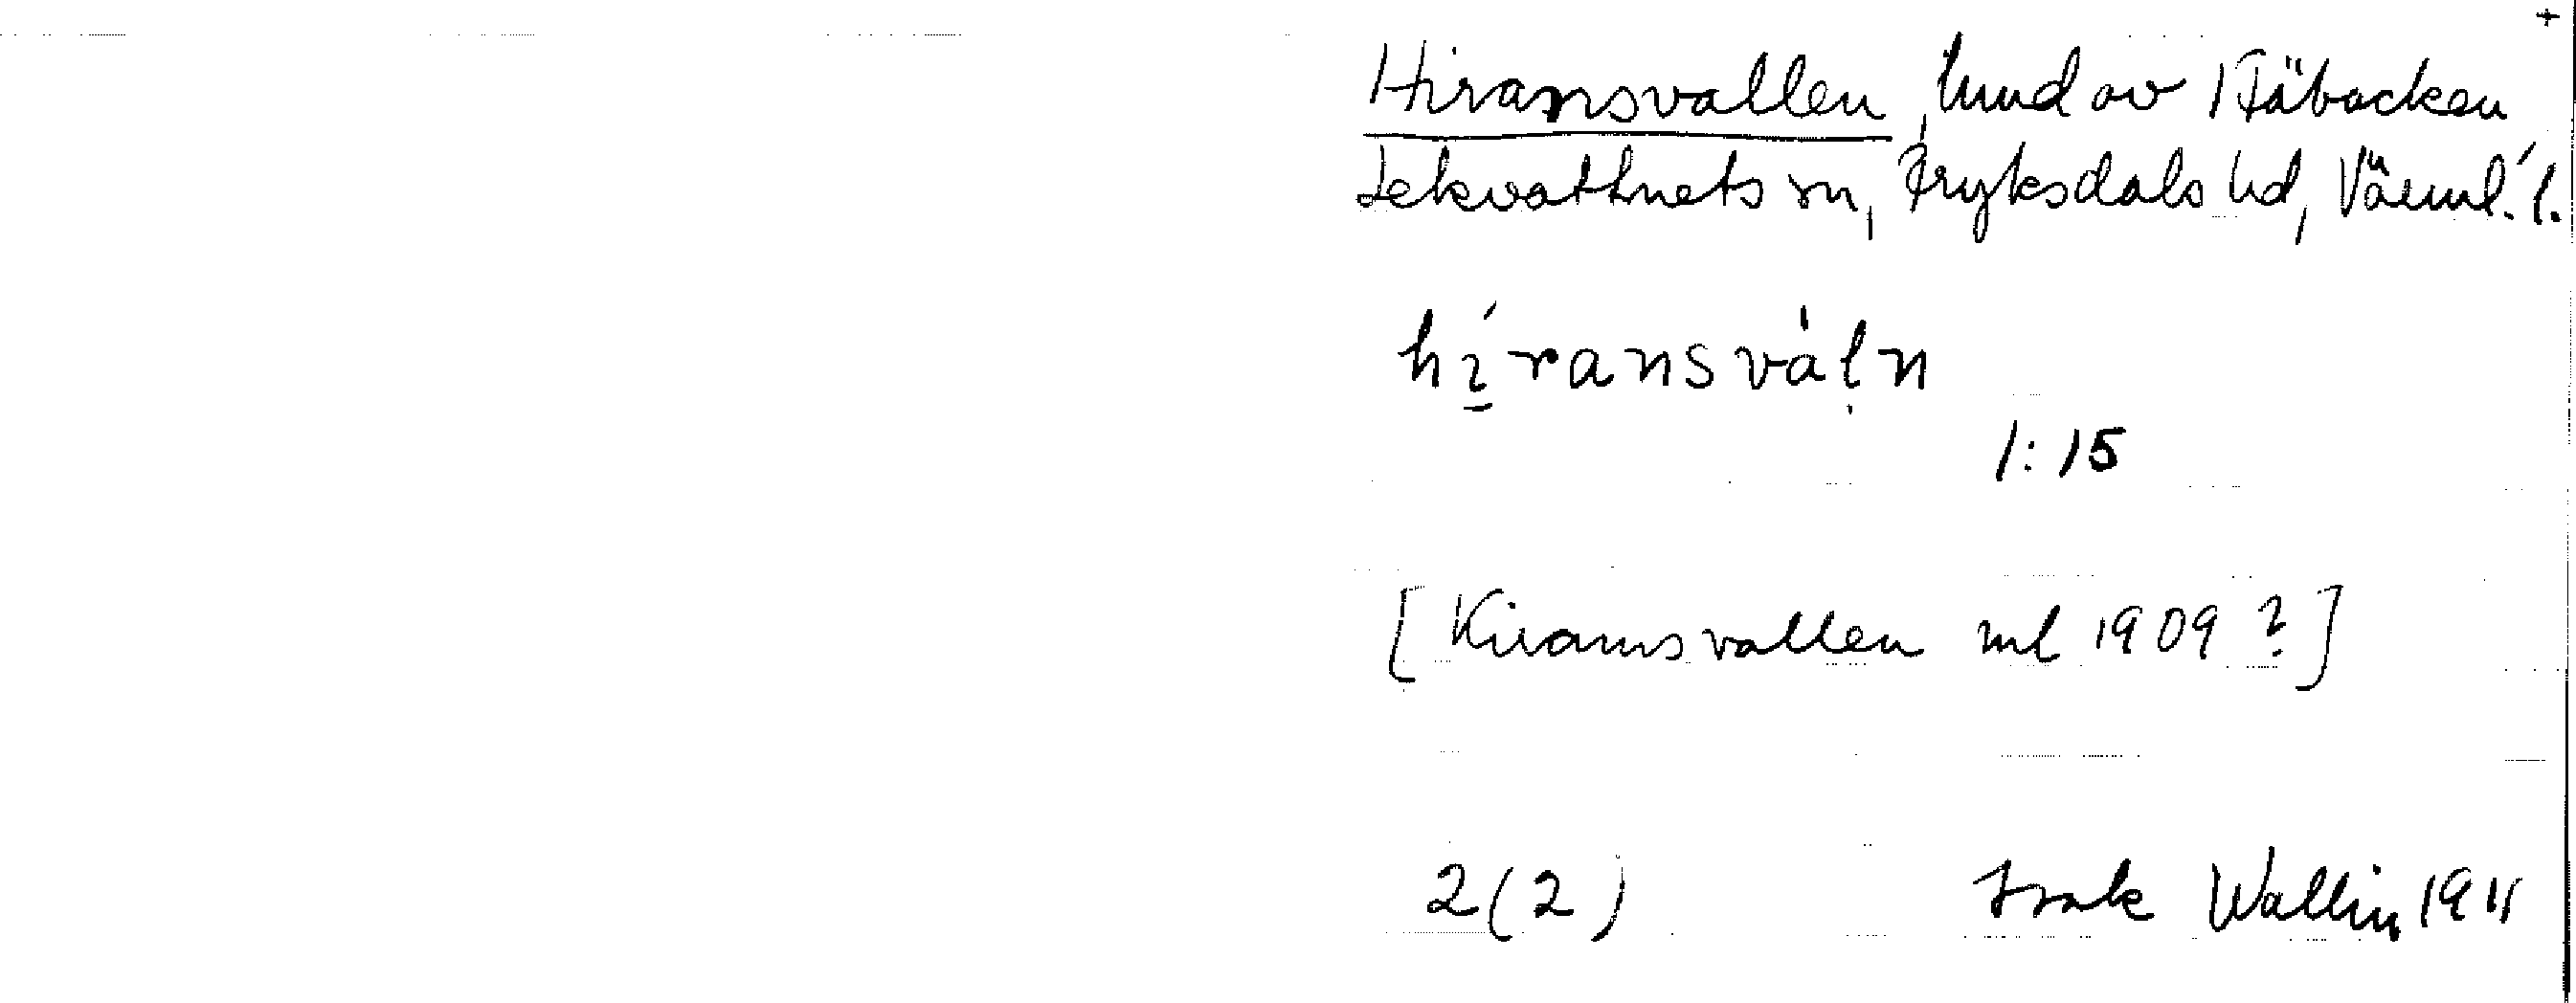 +
Hiransvallen, hmd av 1 Fäbacken
Lekvattnets sn, Fryksdals hd, Värml. l.
híransvàḷn
1:15
[Kiramsvallen ml 1909?]
2(2) Isak Wallin 1911